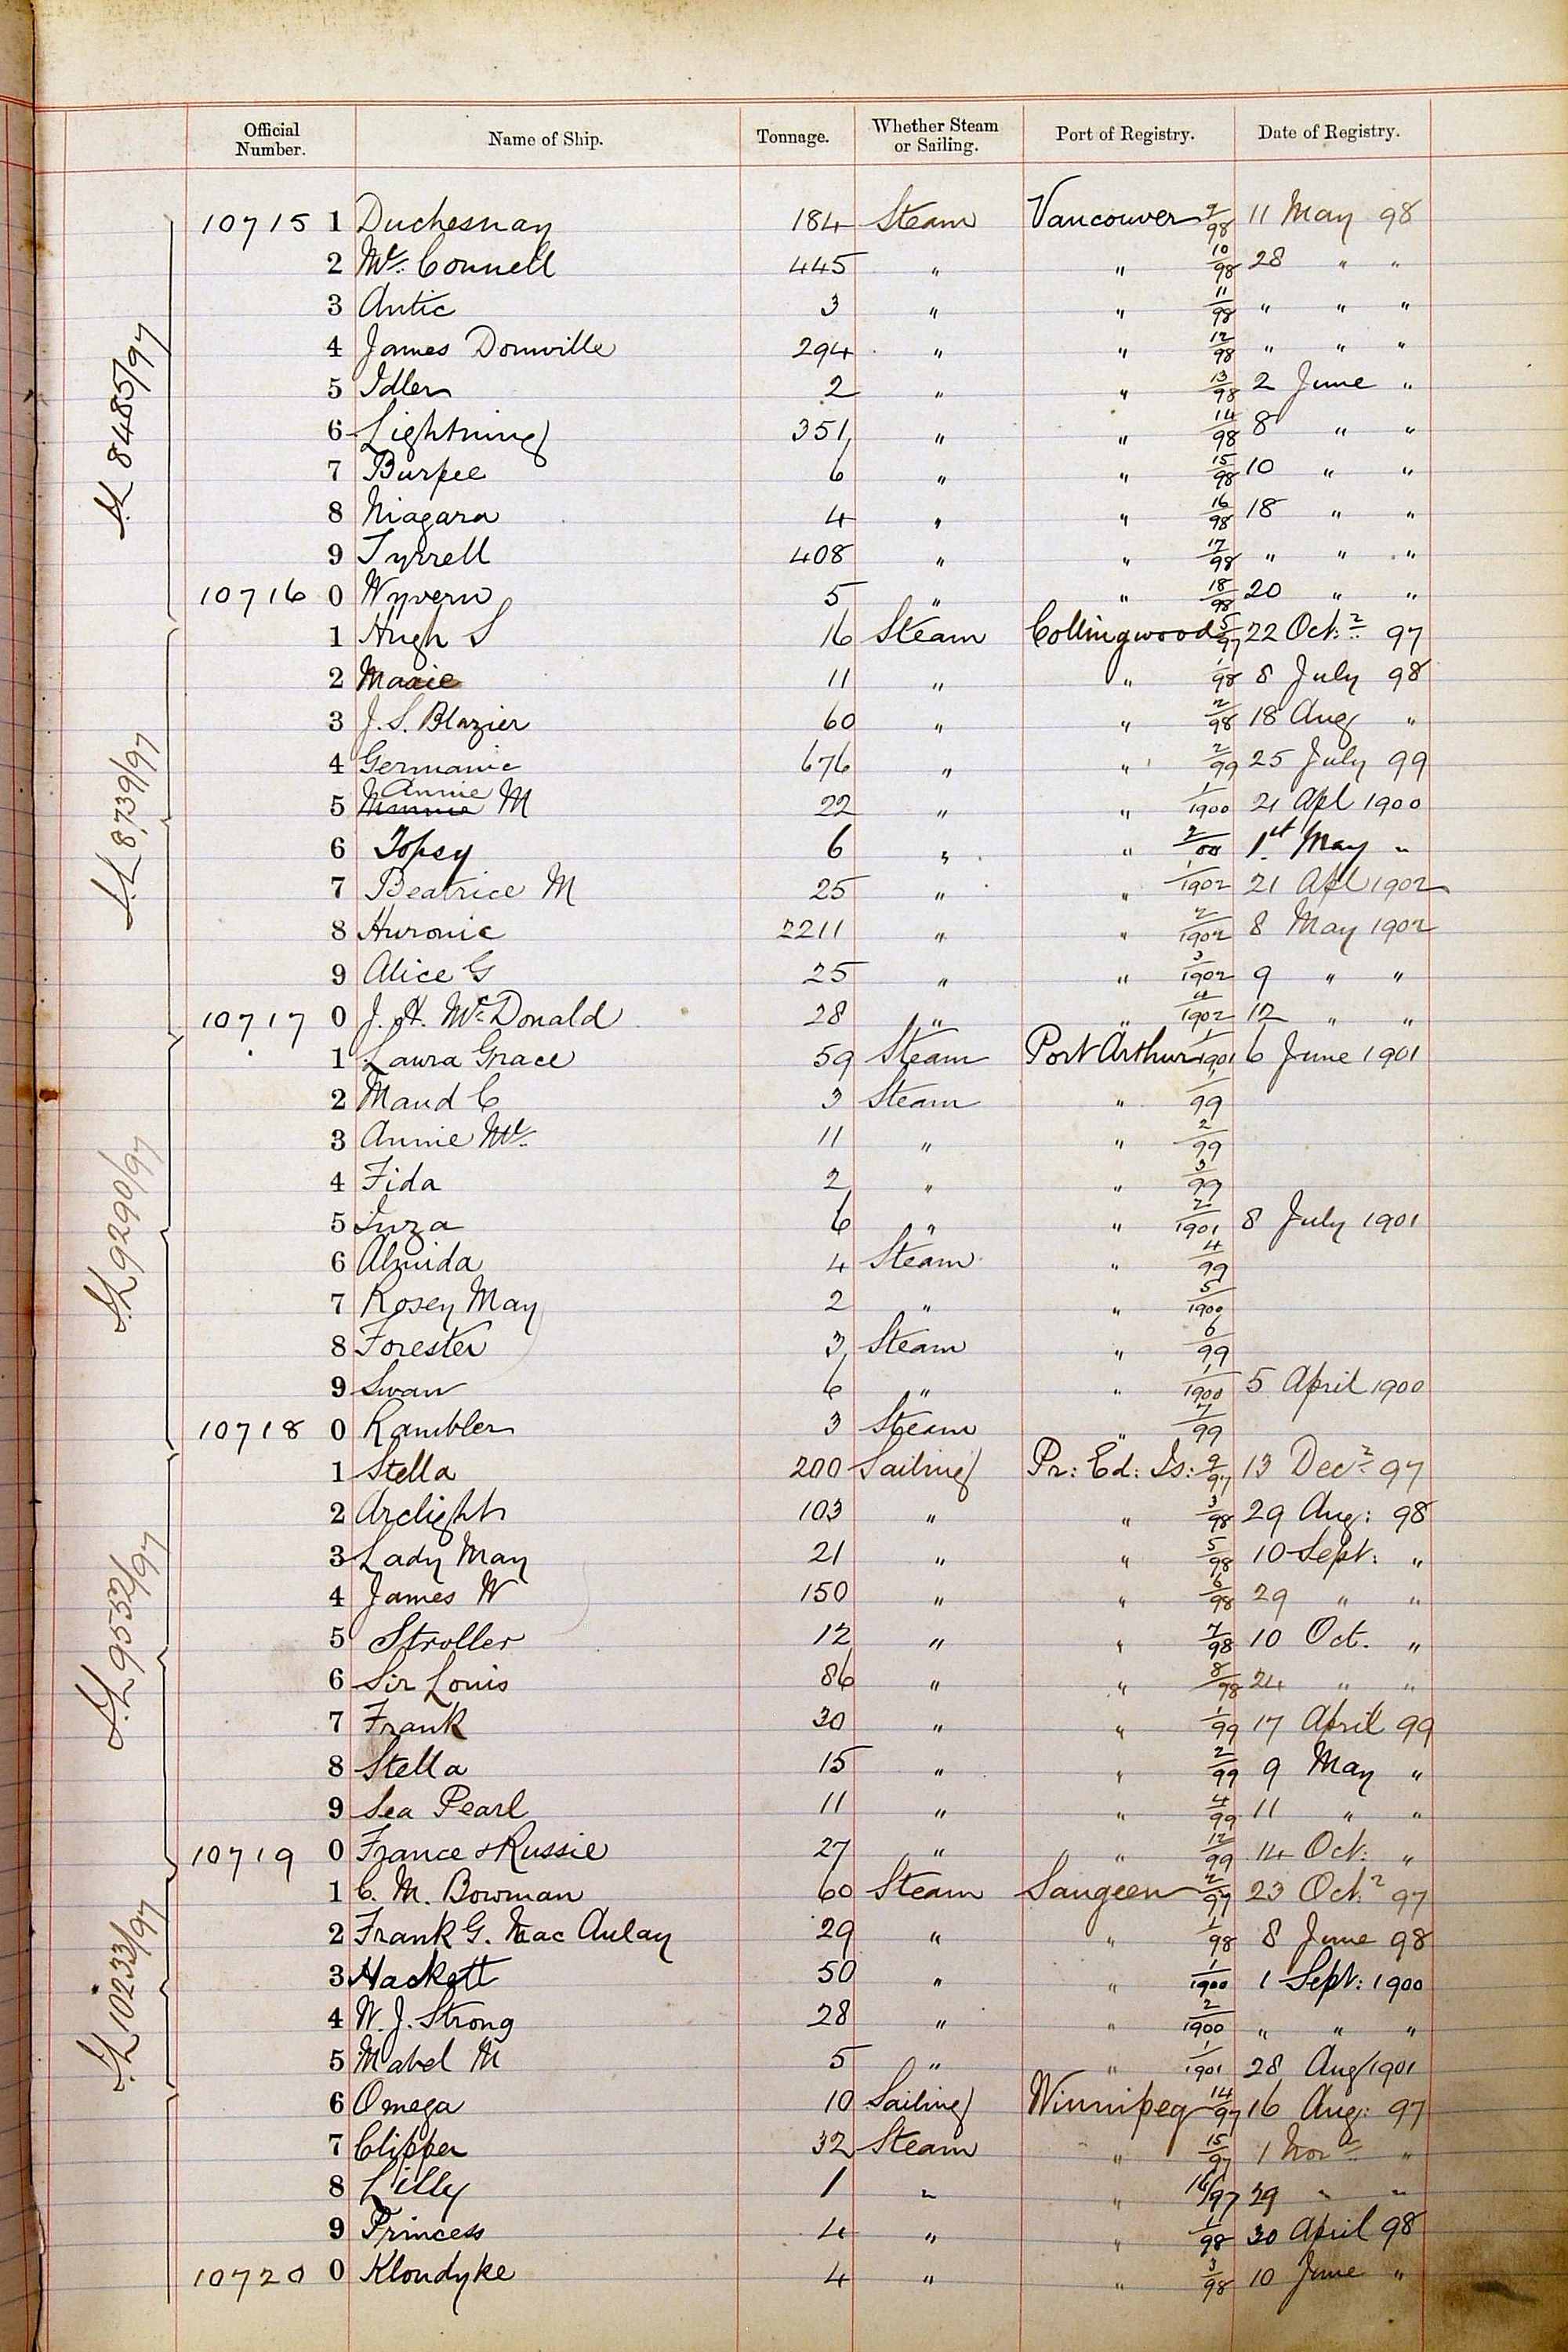 Official Number. Name of Ship. Tonnage. Whether Steam or Sailing. Port of Registry. Date of Registry.
10715 1 Duchesnay 184 Steam Vancouver 9/98 11 May 98
2 Mc. Connell 445 " " 10/98 28 " "
3 Antic 3 " " 11/98 " " "
4 James Domville 294 " " 12/98 " " "
5 Idler 2 " " 13/98 2 June "
6 Lightning 351 " " 14/98 8 " "
7 Burpee 6 " " 15/98 10 " "
8 Niagara 4 " " 16/98 18 " "
9 Tyrrell 408 " " 17/98 " " "
10716 0 Wyvern 5 " " 18/98 20 " "
S.L 8485/97
1 Hugh S 16 Steam Collingwood 5/97 22 Oct: 97
2 11 " " 1/98 8 July 98
3 J. S. Blazier 60 " " 2/98 18 Aug "
4 Germanic 676 " " 2/99 25 July 99
5 Minnie Annie M 22 " " 1/1900 21 Apl 1900
6 Topsy 6 " " 2/00 1st May "
7 Beatrice M 25 " " 1/1902 21 Apl 1902
8 Huronic 2211 " " 2/1902 8 May 1902
9 Alice G 25 " " 3/1902 9 " "
10717 0 J. H. Mc. Donald 28 " " 4/1902 12 " "
S.L 8739/97
1 Laura Grace 59 Steam Port Arthur 1/1901 6 June 1901
2 Maud C 3 Steam " 1/99
3 Annie Mc. 11 " " 2/99
4 Fida 2 " " 3/99
5 Inza 6 " " 2/1901 8 July 1901
6 Almida 4 Steam " 4/99
7 Rosey May 2 " " 5/1900
8 Forester 3 Steam " 6/99
9 Swan 6 " " 1/1900 5 April 1900
10718 0 Rambler 3 Steam " 7/99
S.L 9290/97
1 Stella 200 Sailing Pr: Ed: Is: 9/97 13 Decr. 97
2 Arclight 103 " " 3/98 29 Aug: 98
3 Lady May 21 " " 5/98 10 Sept: "
4 James W 150 " " 6/98 29 " "
5 Stroller 12 " " 7/98 10 Oct. "
6 Sir Louis 86 " " 8/98 24 " "
7 Frank 30 " " 1/99 17 April 99
8 Stella 15 " " 2/99 9 May "
9 Sea Pearl 11 " " 4/99 11 " "
10719 0 France & Russie 27 " " 12/99 14 Oct: "
S.L 9532/97
1 C. M. Bowman 60 Steam Saugeen 2/97 23 Octr 97
2 Frank G. Mac Aulay 29 " " 1/98 8 June 98
3 Hackett 50 " " 1/1900 1 Sept: 1900
4 W. J. Strong 28 " " 2/1900 " " "
5 Mabel M 5 " " 1/1901 28 Aug 1901
S.L 10233/97
6 Omega 10 Sailing Winnipeg 14/97 16 Aug: 97
7 Clipper 32 Steam " 15/97 1 Novr. "
8 Lilly 1 " " 16/97 29 " "
9 Princess 4 " " 1/98 30 April 98
10720 0 Klondyke 4 " " 3/98 10 June "